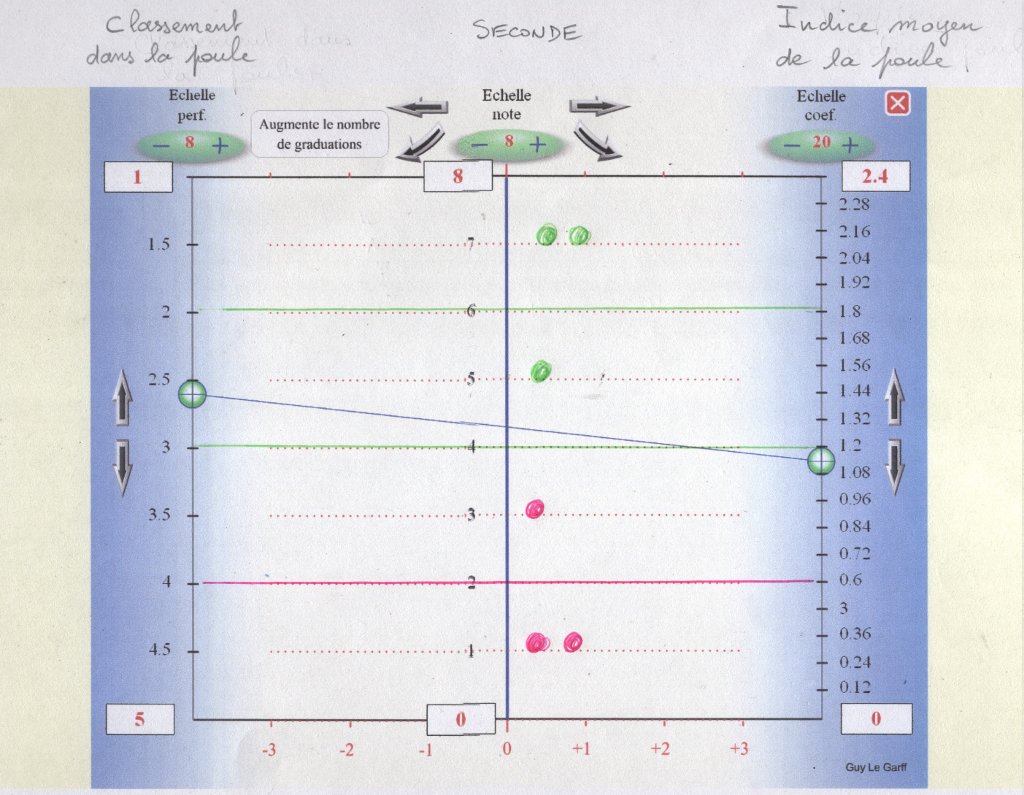 Classement
dans la poule
SECONDE
Indice moyen
de la poule
Echelle
perf.
Augmente le nombre
de graduations
Echelle
note
Echelle
coef.
− 8 +
− 8 +
− 20 +
1
8
2.4
2.28
2.16
1.5
7
2.04
1.92
2
6
1.8
1.68
1.56
2.5
5
1.44
1.32
3
4
1.2
1.08
0.96
3.5
3
0.84
0.72
4
2
0.6
3
0.36
4.5
1
0.24
0.12
5
0
0
-3
-2
-1
0
+1
+2
+3
Guy Le Garff